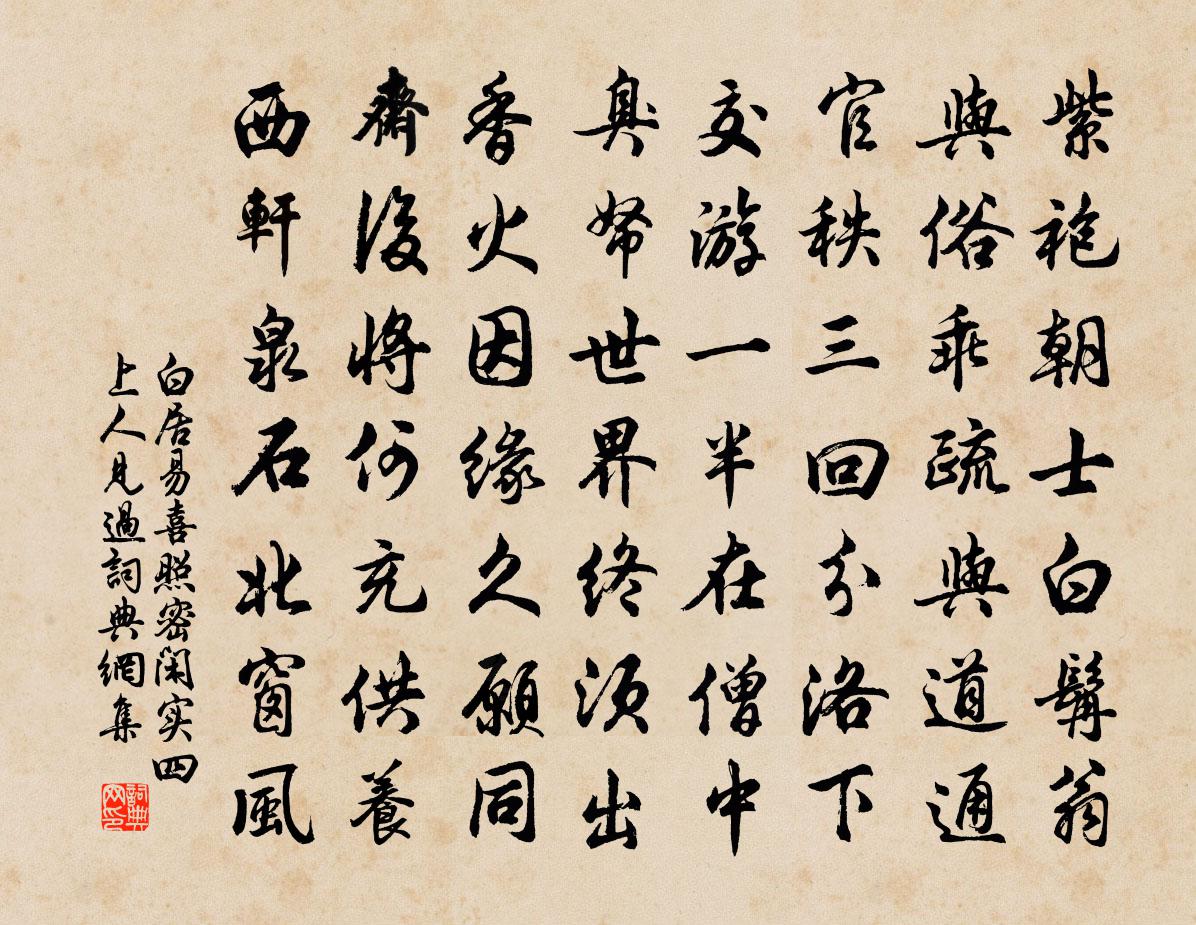 紫袍朝士白髯翁
與俗乖疏與道通
官秩三回分洛下
交游一半在僧中
臭帑世界終須出
香火因緣久願同
齋後將何充供養
西軒泉石北窗風
白居易喜照密閑实四
上人見過詞典網集
詞典网印